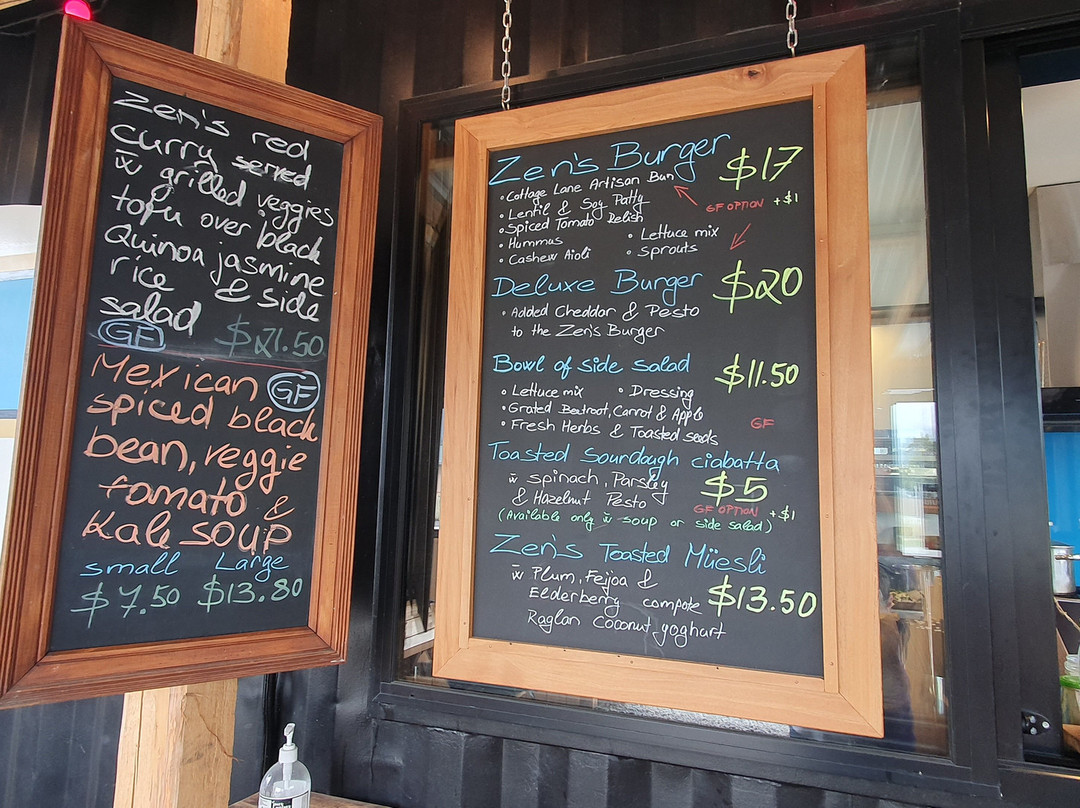 Zen's red
curry served
w̄ grilled veggies
tofu over black
Quinoa jasmine
rice & side
salad
GF $21.50
Mexican GF
spiced black
bean, veggie
tomato &
Kale SOUP
small Large
$7.50 $13.80
Zen's Burger $17
• Cottage Lane Artisan Bun
GF OPTION +$1
• Lentil & Soy Patty
• Spiced Tomato Relish
• Hummus • Lettuce mix
• Cashew Aioli • Sprouts
Deluxe Burger $20
• Added Cheddar & Pesto
to the Zen's Burger
Bowl of side salad $11.50
• Lettuce mix • Dressing
• Grated Beetroot, Carrot & Apple
• Fresh Herbs & Toasted seeds GF
Toasted Sourdough ciabatta
w̄ spinach, Parsley $5
& Hazelnut Pesto GF OPTION +$1
(Available only w̄ soup or side salad)
Zen's Toasted Müesli
w̄ Plum, Feijoa & $13.50
Elderberry compote
Raglan Coconut yoghurt